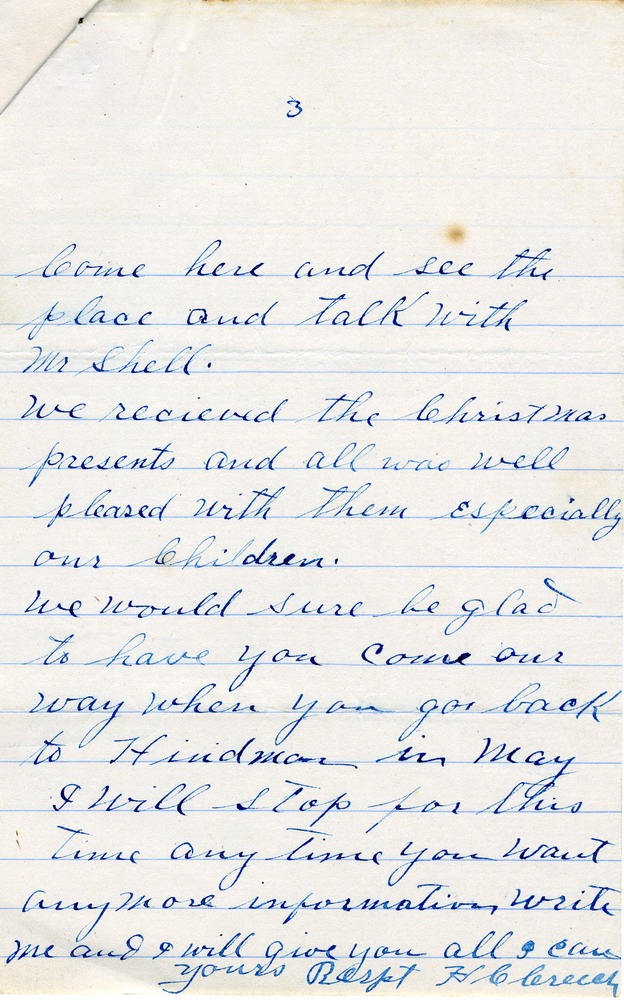 3
Come here and see the
place and talk with
Mr Shell.
We recieved the Christmas
presents and all was well
pleased with them especially
our Children.
We would sure be glad
to have you come our
way when you go back
to Hindman in May
I will stop for this
time any time you want
any more information, write
me and I will give you all I can
yours Respt H C Creech